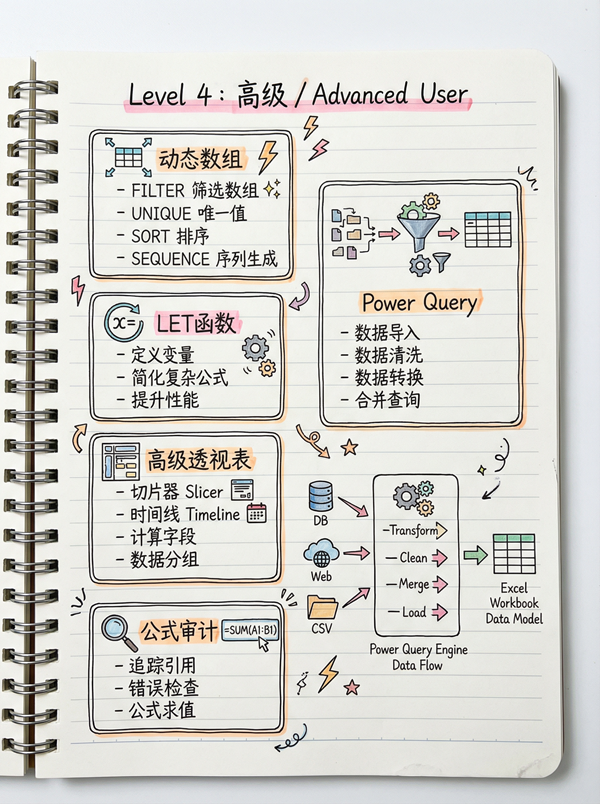 Level 4：高级 / Advanced User
动态数组
- FILTER 筛选数组
- UNIQUE 唯一值
- SORT 排序
- SEQUENCE 序列生成
x=
LET函数
- 定义变量
- 简化复杂公式
- 提升性能
高级透视表
- 切片器 Slicer
- 时间线 Timeline
- 计算字段
- 数据分组
公式审计
=SUM(A1:B1)
- 追踪引用
- 错误检查
- 公式求值
Power Query
- 数据导入
- 数据清洗
- 数据转换
- 合并查询
DB
Web
CSV
-Transform
- Clean
- Merge
- Load
Power Query Engine
Data Flow
Excel
Workbook
Data Model